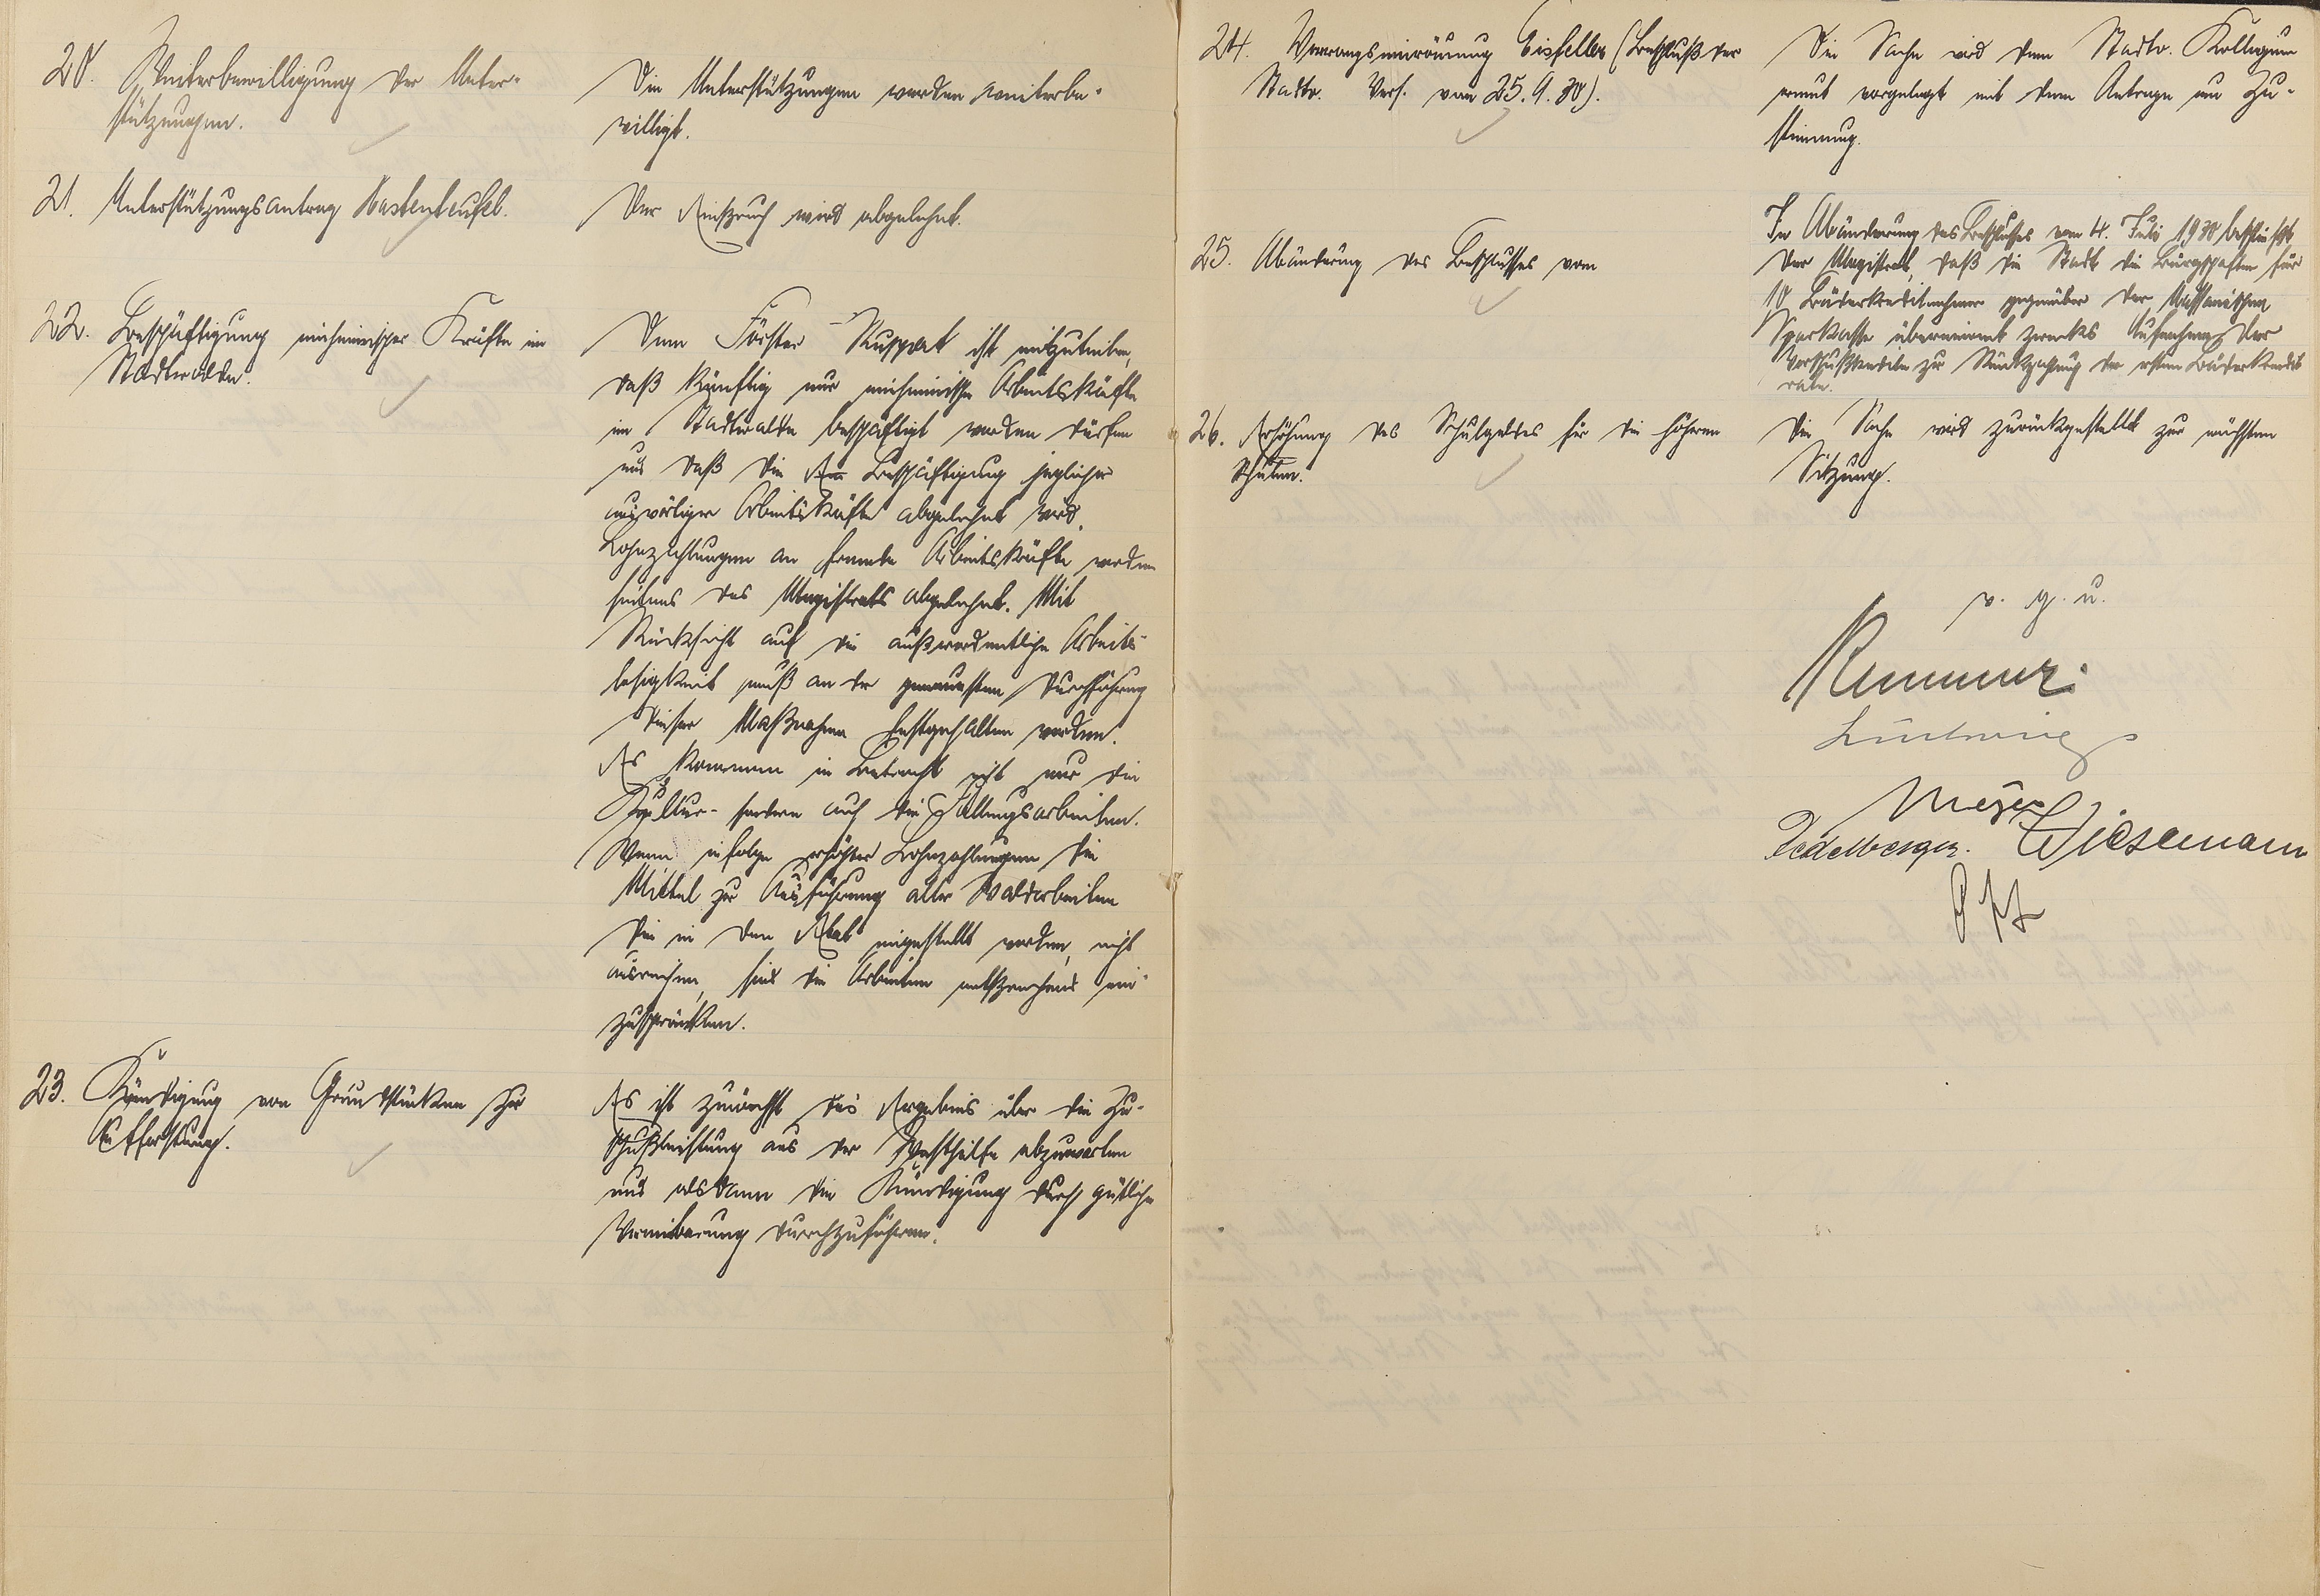 20. Weiterbewilligung der Unter-
stützungen.
Die Unterstützungen werden weiterbe-
willigt.
21. Unterstützungsantrag Kastenteufel.
Der Einspruch wird abgelehnt.
22. Beschäftigung einheimischer Kräfte im
Stadtwalde.
Dem Förster Ruppert ist mitzuteilen,
daß künftig nur einheimische Arbeitskräfte
im Stadtwalde beschäftigt werden dürfen
und daß die Beschäftigung jeglicher
auswärtiger Arbeitskräfte abgelehnt wird.
Lohnzahlungen an fremde Arbeitskräfte werden
seitens des Magistrats abgelehnt. Mit
Rücksicht auf die außerordentliche Arbeits-
losigkeit muß an der genauesten Durchführung
dieser Maßnahme festgehalten werden.
Es kommen in Betracht nicht nur die
Kultur- sondern auch die Fällungsarbeiten.
Wenn infolge erhöhter Lohnzahlungen die
Mittel zur Ausführung aller Waldarbeiten
die in den Etat eingestellt werden, nicht
ausreichen, sind die Arbeiten entsprechend ein-
zuschränken.
23. Kündigung von Grundstücken zur
Aufforstung.
Es ist zunächst das Ergebnis über die Zu-
schußleistung aus der Westhilfe abzuwarten
und alsdann die Kündigung durch gütliche
Vereinbarung durchzuführen.
24. Vorrangseinräumung Eisfeller (Beschluß der
Stadtv. Vers. vom 25.9.30).
Die Sache wird dem Stadtv. Kollegium
erneut vorgelegt mit dem Antrage um Zu-
stimmung.
25. Abänderung des Beschlusses vom
In Abänderung des Beschlusses vom 4. Juli 1930 beschließt
der Magistrat, daß die Stadt die Bürgschaften für
10 Bäderkreditnehmer gegenüber der Nassauischen
Sparkasse übernimmt zwecks Aufnahme der
Vorschußkredite zur Rückzahlung der ersten Bäderkredit
rate.
26. Erhöhung des Schulgeldes für die höheren
Schulen.
Die Sache wird zurückgestellt zur nächsten
Sitzung.
v. g. u.
Ludwig
Meyer
Wiesemann